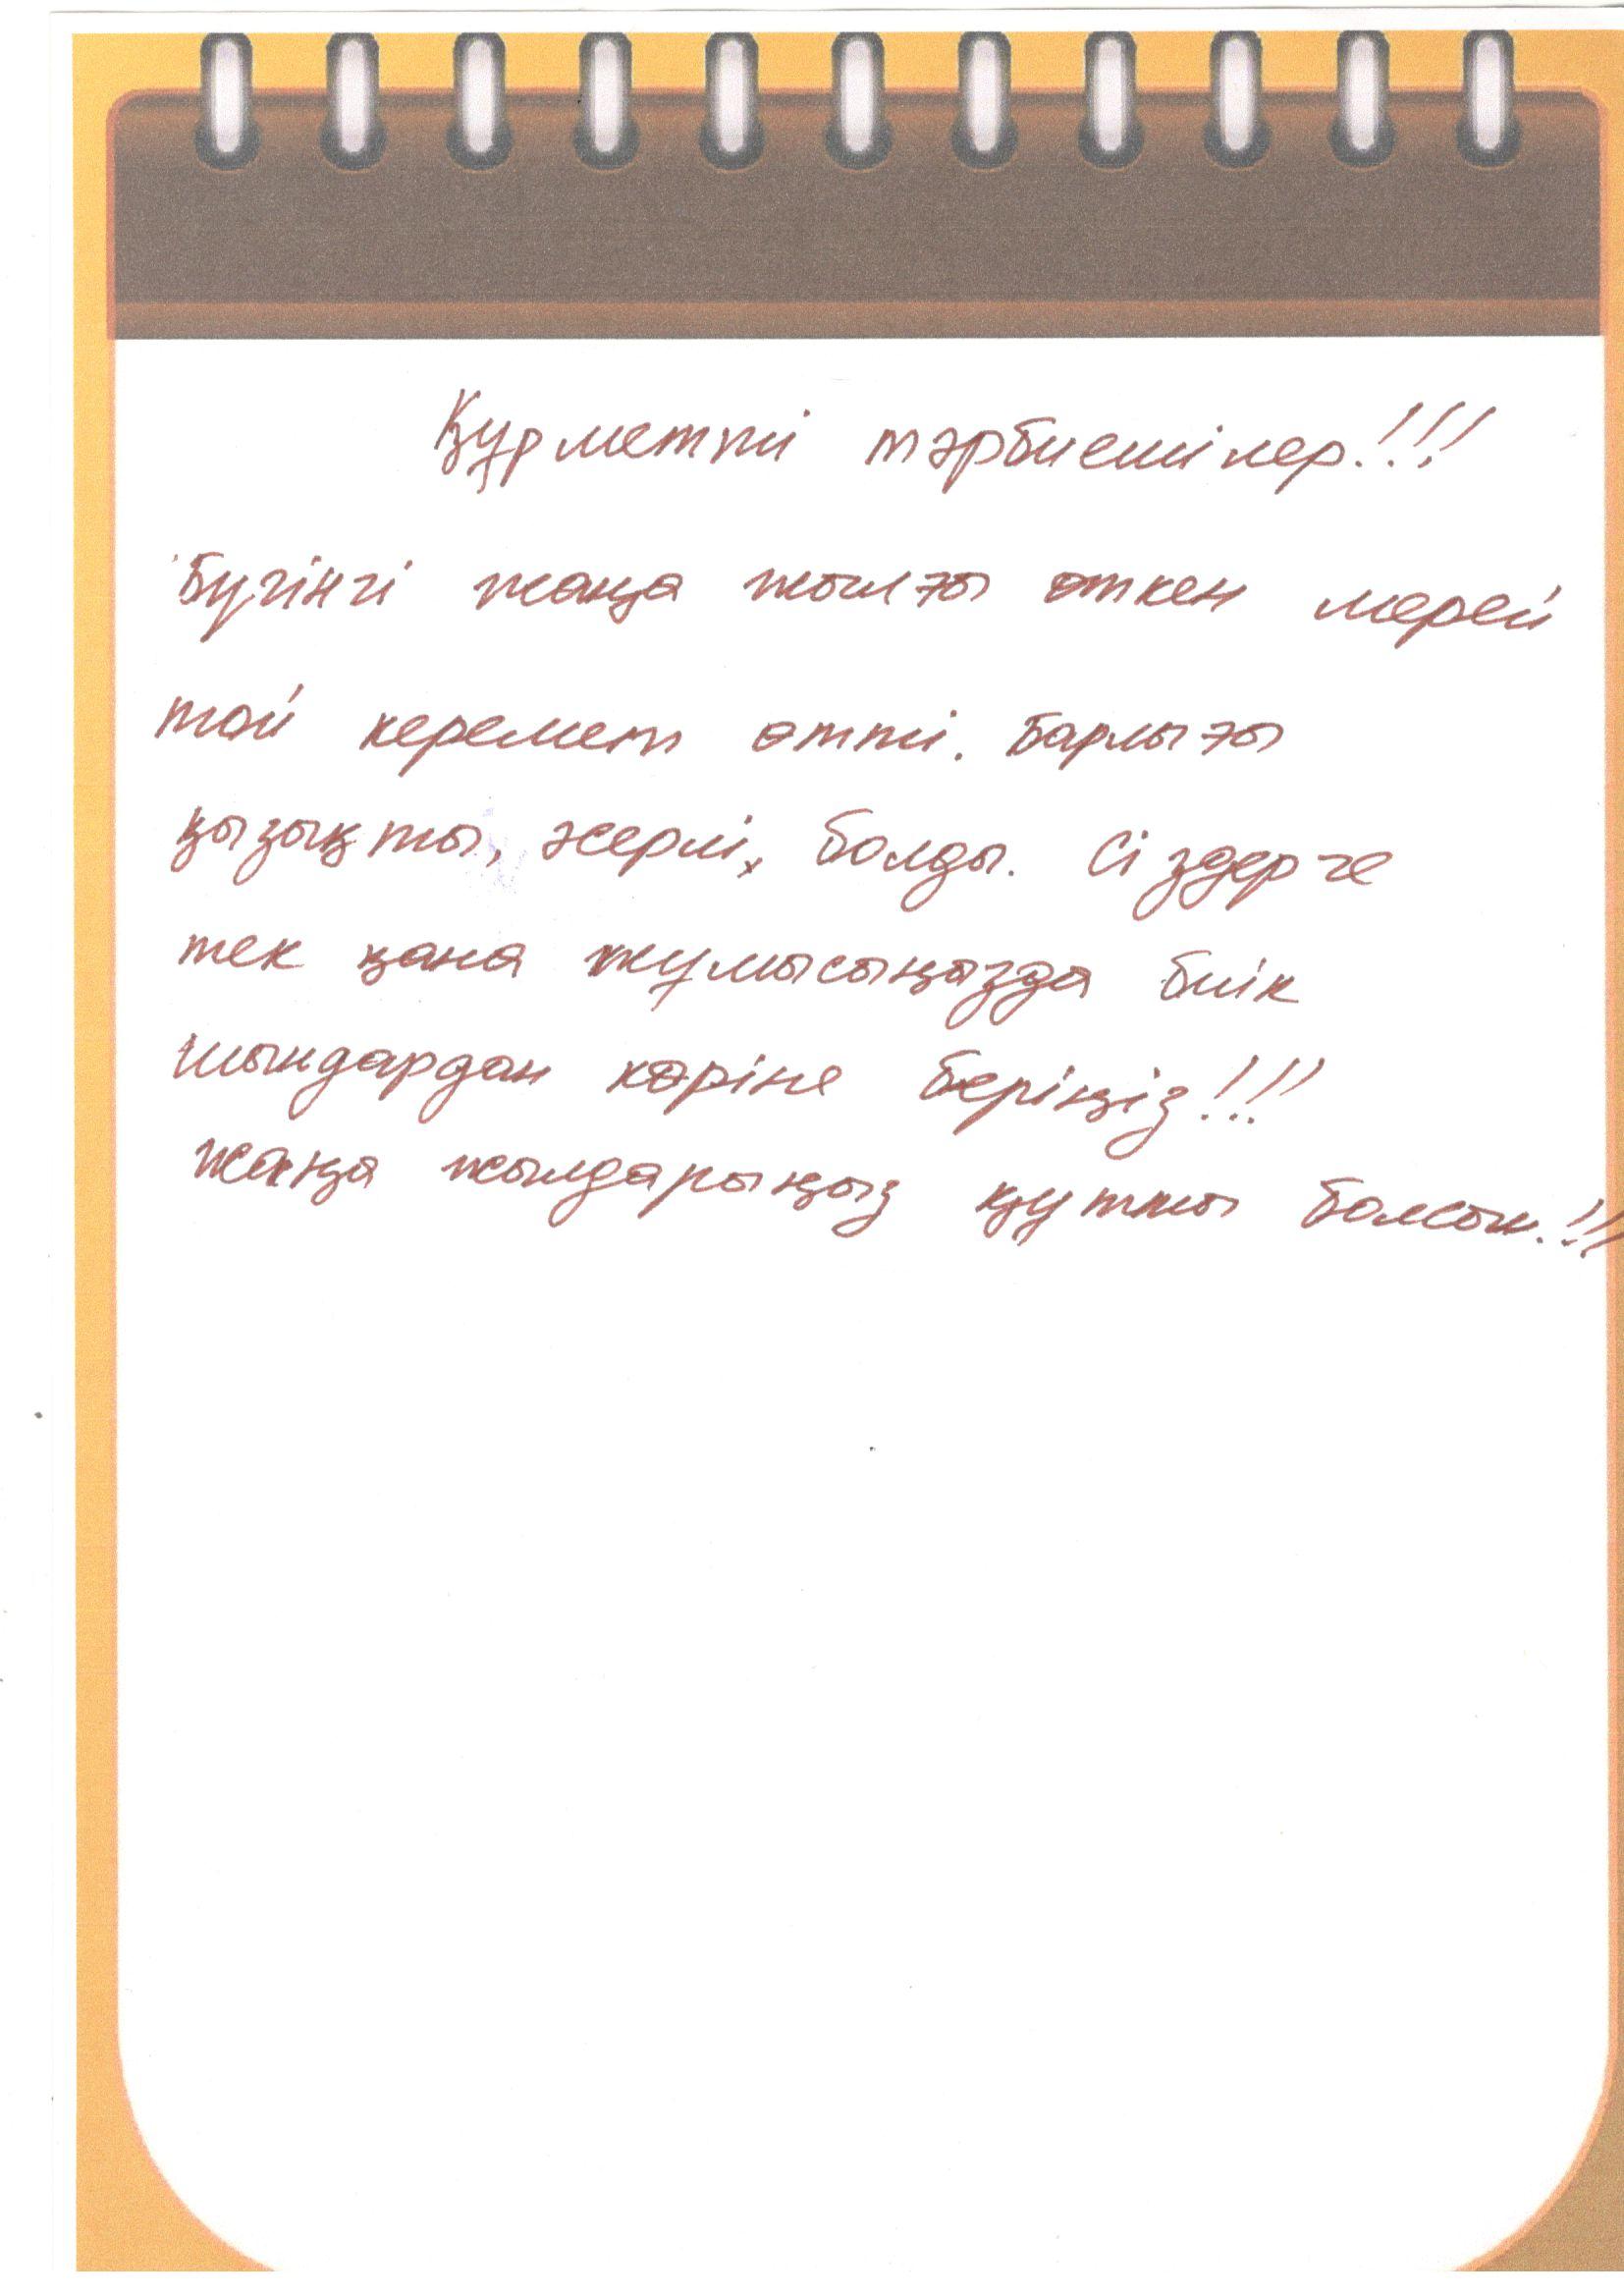 Құрметті тәрбиешілер!!!
Бүгінгі жаңа жылғы өткен мерей
той керемет өтті. Барлығы
қызықты, әсерлі, болды. Сіздерге
тек қана жұмысыңызда биік
шыңдардан көріне беріңіз!!!
Жаңа жылдарыңыз құтты болсын.!!!